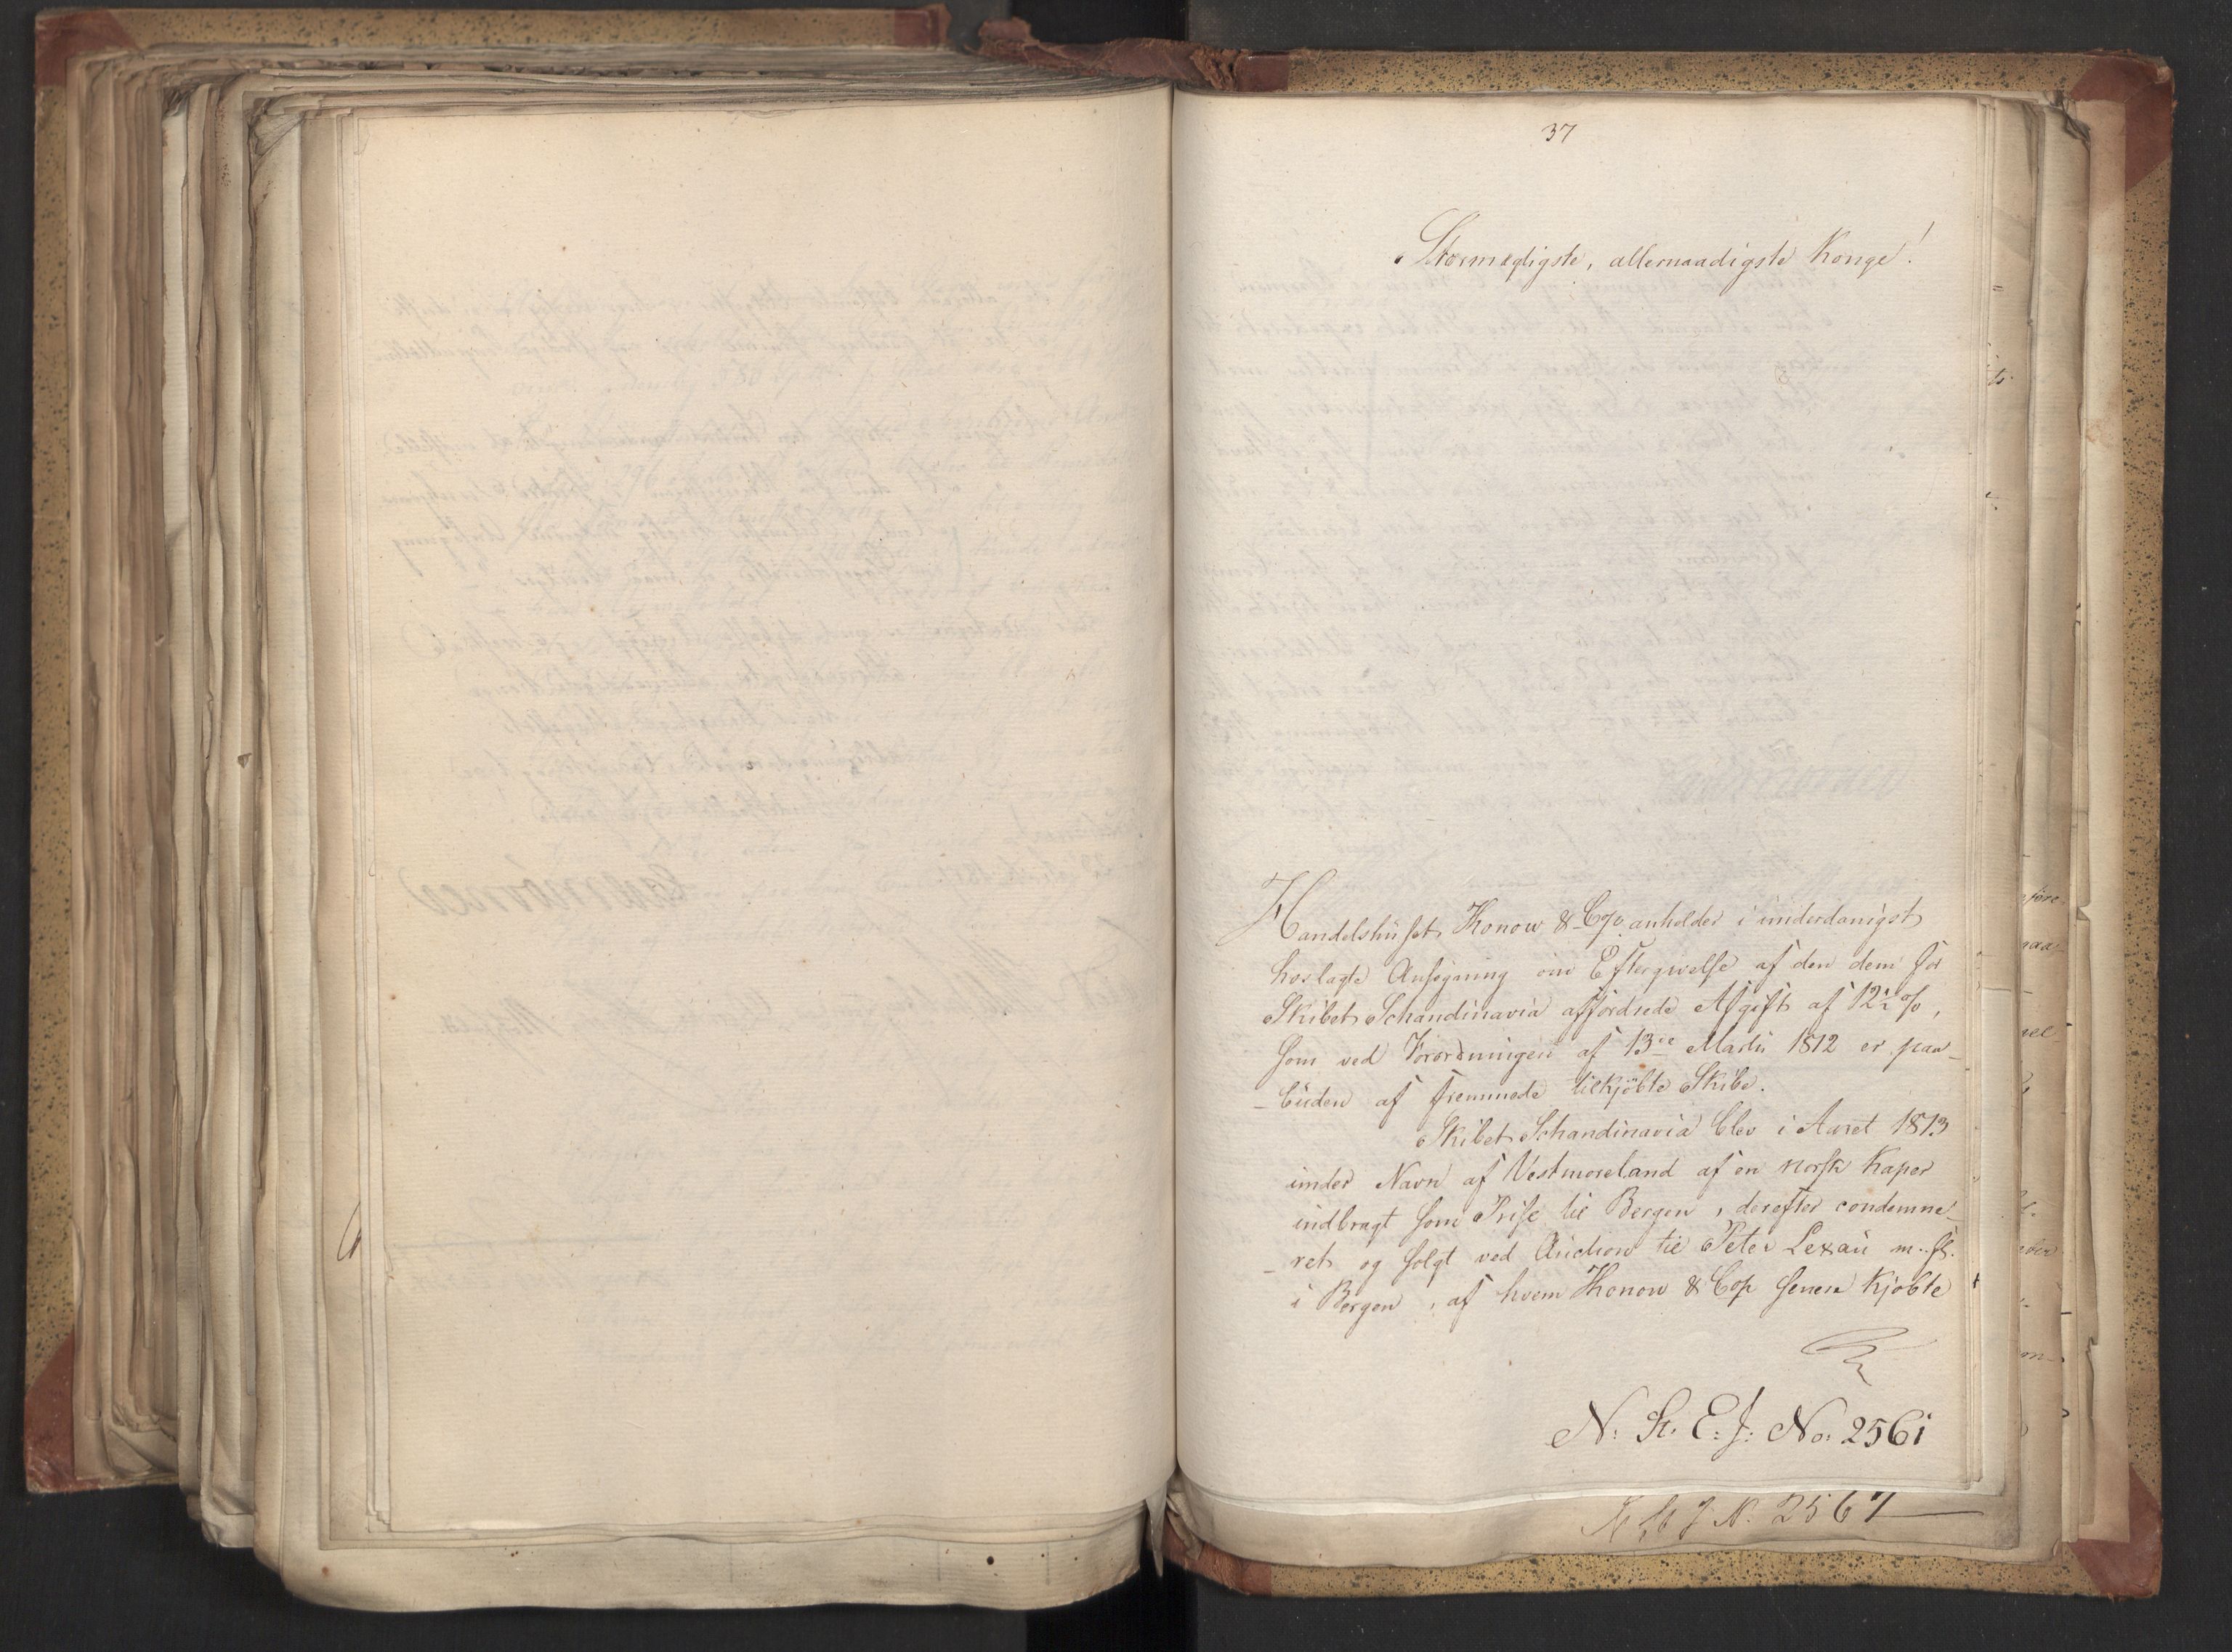 37
Stormægtigste, allernaadigste Konge!
Handelshuset Konow & Cop anholder i underdanigst
hoslagte Ansøgning om Eftergivelse af den dem for
Skibet Schandinavia affordrede Afgift af 12½ %,
som ved Forordningen af 13de Martii 1812 er paa-
-buden af fremmede tilkjøbte Skibe.
Skibet Schandinavia blev i Aaret 1813
under Navn af Vestmoreland af en norsk Kaper
indbragt som Prise til Bergen, derefter condemne-
-ret og solgt ved Auction til Peter Lexau m. fl.
i Bergen, af hvem Konow & Cop senere kjøbte
N. R. E. J: No: 2561
J No. 2567